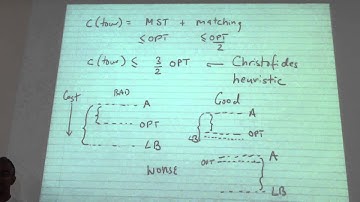 c(tour) = MST + matching
≤OPT ≤ OPT/2
c(tour) ≤ 3/2 OPT ← Christofides heuristic
Cost
BAD
A
OPT
LB
Good
A
OPT
LB
WORSE
OPT
A
LB